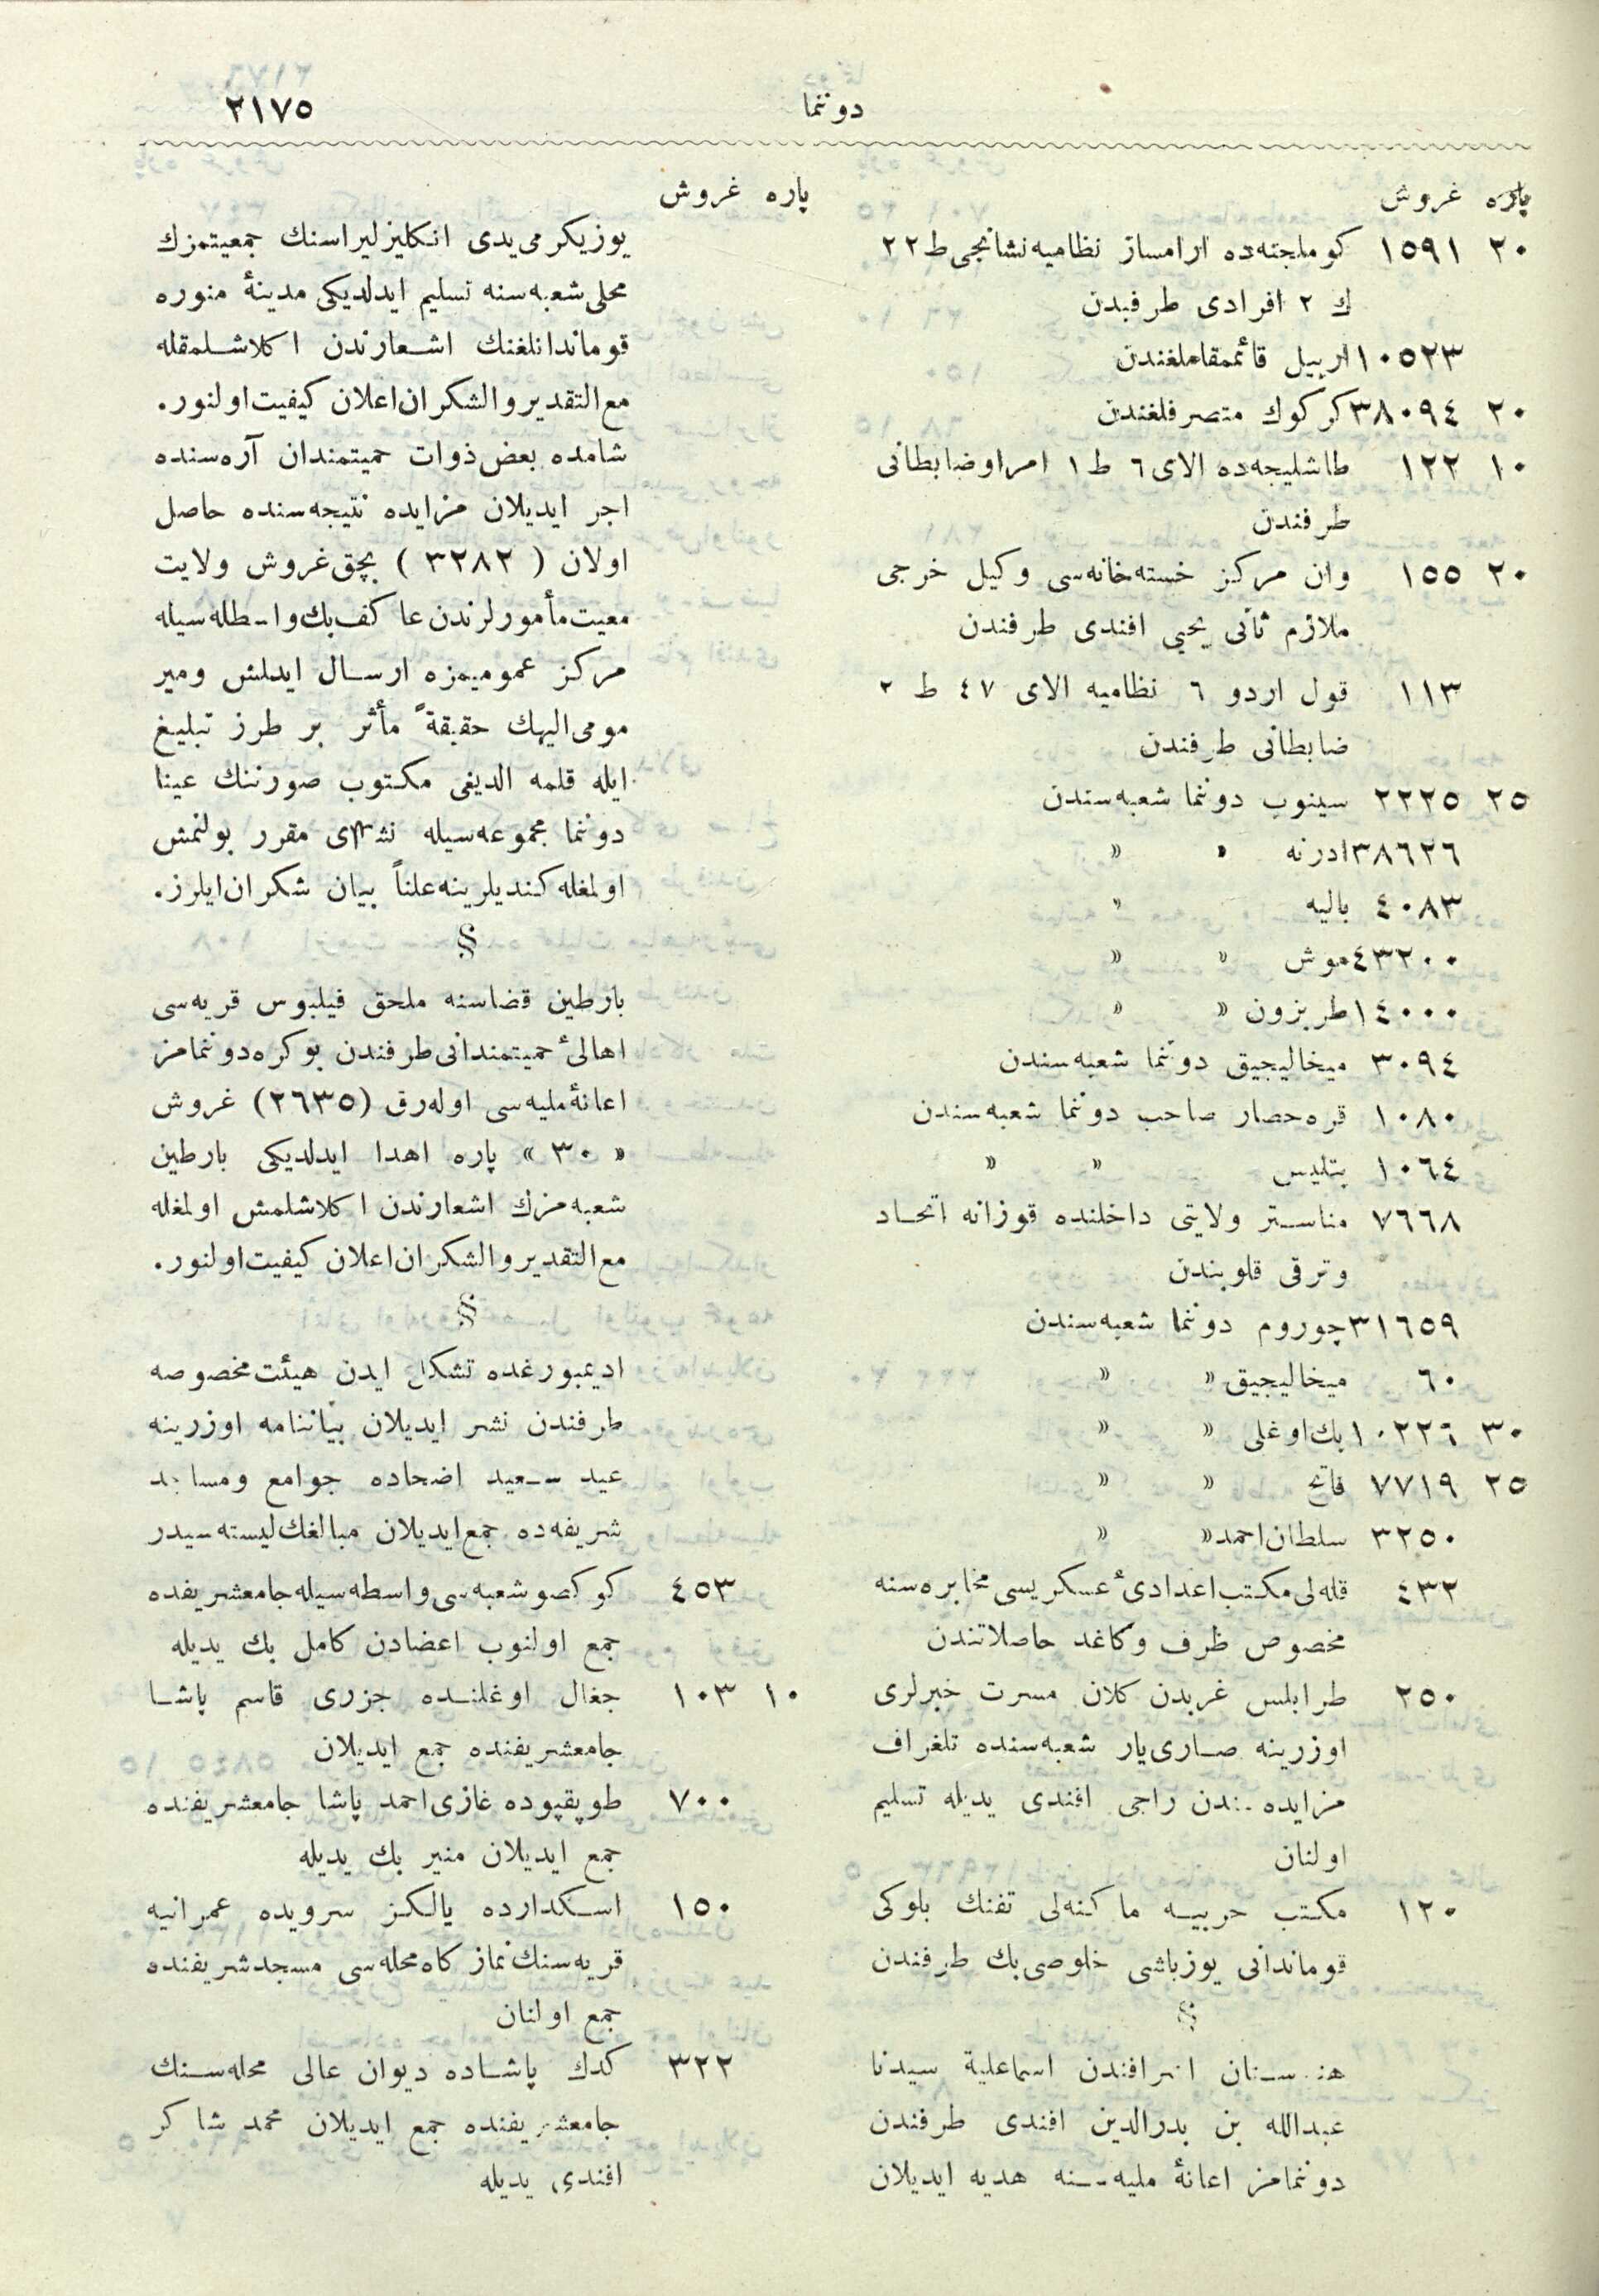 ٢١٧٥
دوننما
پاره غروش
٢٠ ١٥٩١ كوملجنه‌ده ارامساز نظاميه نشانجى ط ٢٢
ك ٢ افرادى طرفندن
١٠٥٢٣ اربيل قائممقاملغندن
٢٠ ٣٨٠٩٤ كركوك متصرفلغندن
١٠ ١٢٢ طاشليجه‌ده الاى ٦ ط ١ امرا وضابطانى
طرفندن
٢٠ ١٥٥ وان مركز خسته‌خانه‌سى وكيل خرجى
ملازم ثانى يحيى افندى طرفندن
١١٣ قول اردو ٦ نظاميه الاى ٤٧ ط ٢
ضابطانى طرفندن
٢٥ ٢٢٢٥ سينوب دوننما شعبه‌سندن
٣٨٦٢٦ ادرنه » »
٤٠٨٣ باليه »
٤٣٢٠٠ موش » »
١٤٠٠٠ طربزون » »
٣٠٩٤ ميخاليجيق دوننما شعبه‌سندن
١٠٨٠ قره‌حصار صاحب دوننما شعبه‌سندن
١٠٦٤ بتليس » »
٧٦٦٨ مناستر ولايتى داخلنده قوزانه اتحاد
وترقى قلوبندن
٣١٦٥٩ چوروم دوننما شعبه‌سندن
٦٠ ميخاليجيق » »
٣٠ ١٠٢٢٦ بك‌اوغلى » »
٢٥ ٧٧١٩ فاتح » »
٣٢٥٠ سلطان‌احمد » »
٤٣٢ قله‌لى مكتب اعدادئ عسكريسى مخابره‌سنه
مخصوص ظرف وكاغد حاصلاتندن
٢٥٠ طرابلس غربدن كلان مسرت خبرلرى
اوزرينه صارى‌يار شعبه‌سنده تلغراف
مزايده‌سندن راجى افندى يديله تسليم
اولنان
١٢٠ مكتب حربيه ماكنه‌لى تفنك بلوكى
قوماندانى يوزباشى خلوصى‌بك طرفندن
§
هندستان اشرافندن اسماعلية سيدنا
عبدالله بن بدرالدين افندى طرفندن
دوننمامز اعانهٔ مليه‌سنه هديه ايديلان
پاره غروش
يوزيكرمى‌يدى انكليز ليراسنك جمعيتمزك
محلى شعبه‌سنه تسليم ايدلديكى مدينهٔ منوره
قوماندانلغنك اشعارندن اكلاشلمقله
مع‌التقدير والشكران اعلان كيفيت اولنور.
شامده بعض ذوات حميتمندان آره‌سنده
اجر ايديلان مزايده نتيجه‌سنده حاصل
اولان ( ٣٢٨٢ ) بچق غروش ولايت
معيت مأمورلرندن عاكف بك واسطله‌سيله
مركز عموميمزه ارسال ايدلمش ومير
مومى‌اليهك حقيقةً مأثر بر طرز تبليغ
ايله قلمه الديغى مكتوب صورتنك عينا
دوننما مجموعه‌سيله نشرى مقرر بولنمش
اولمغله كنديلرينه علناً بيان شكران ايلرز.
§
بارطين قضاسنه ملحق فيلبوس قريه‌سى
اهالئ حميتمندانى طرفندن بوكره دوننمامز
اعانهٔ مليه‌سى اوله‌رق (٢٦٣٥) غروش
« ٣٠ » پاره اهدا ايدلديكى بارطين
شعبه‌مزك اشعارندن اكلاشلمش اولمغله
مع‌التقدير والشكران اعلان كيفيت اولنور.
§
اديمبورغده تشكل ايدن هيئت مخصوصه
طرفندن نشر ايديلان بياننامه اوزرينه
عيد سعيد اضحاده جوامع ومساجد
شريفه‌ده جمع ايديلان مبالغك ليسته‌سيدر
٤٥٣ كوكصو شعبه‌سى واسطه‌سيله جامعشريفده
جمع اولنوب اعضادن كامل بك يديله
١٠ ١٠٣ جغال اوغلنده جزرى قاسم پاشا
جامعشريفنده جمع ايديلان
٧٠٠ طوپقپوده غازى احمد پاشا جامعشريفنده
جمع ايديلان منير بك يديله
١٥٠ اسكدارده يالكز سرويده عمرانيه
قريه‌سنك نمازكاه محله‌سى مسجد شريفنده
جمع اولنان
٣٢٢ كدك پاشاده ديوان عالى محله‌سنك
جامعشريفنده جمع ايديلان محمد شاكر
افندى يديله